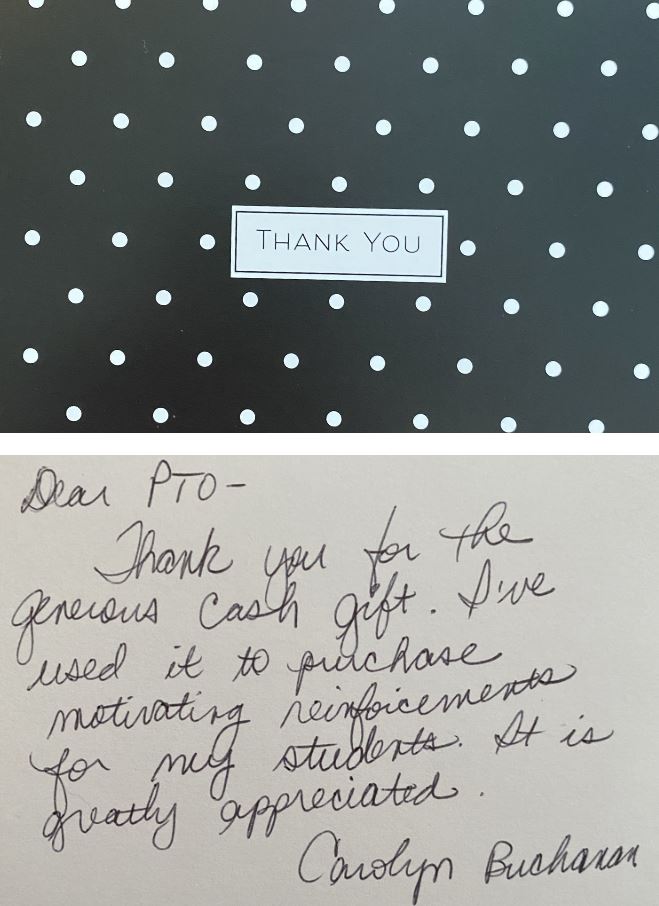 THANK YOU
Dear PTO-
Thank you for the
generous cash gift. I've
used it to purchase
motivating reinforcements
for my students. It is
greatly appreciated.
Carolyn Buchanan